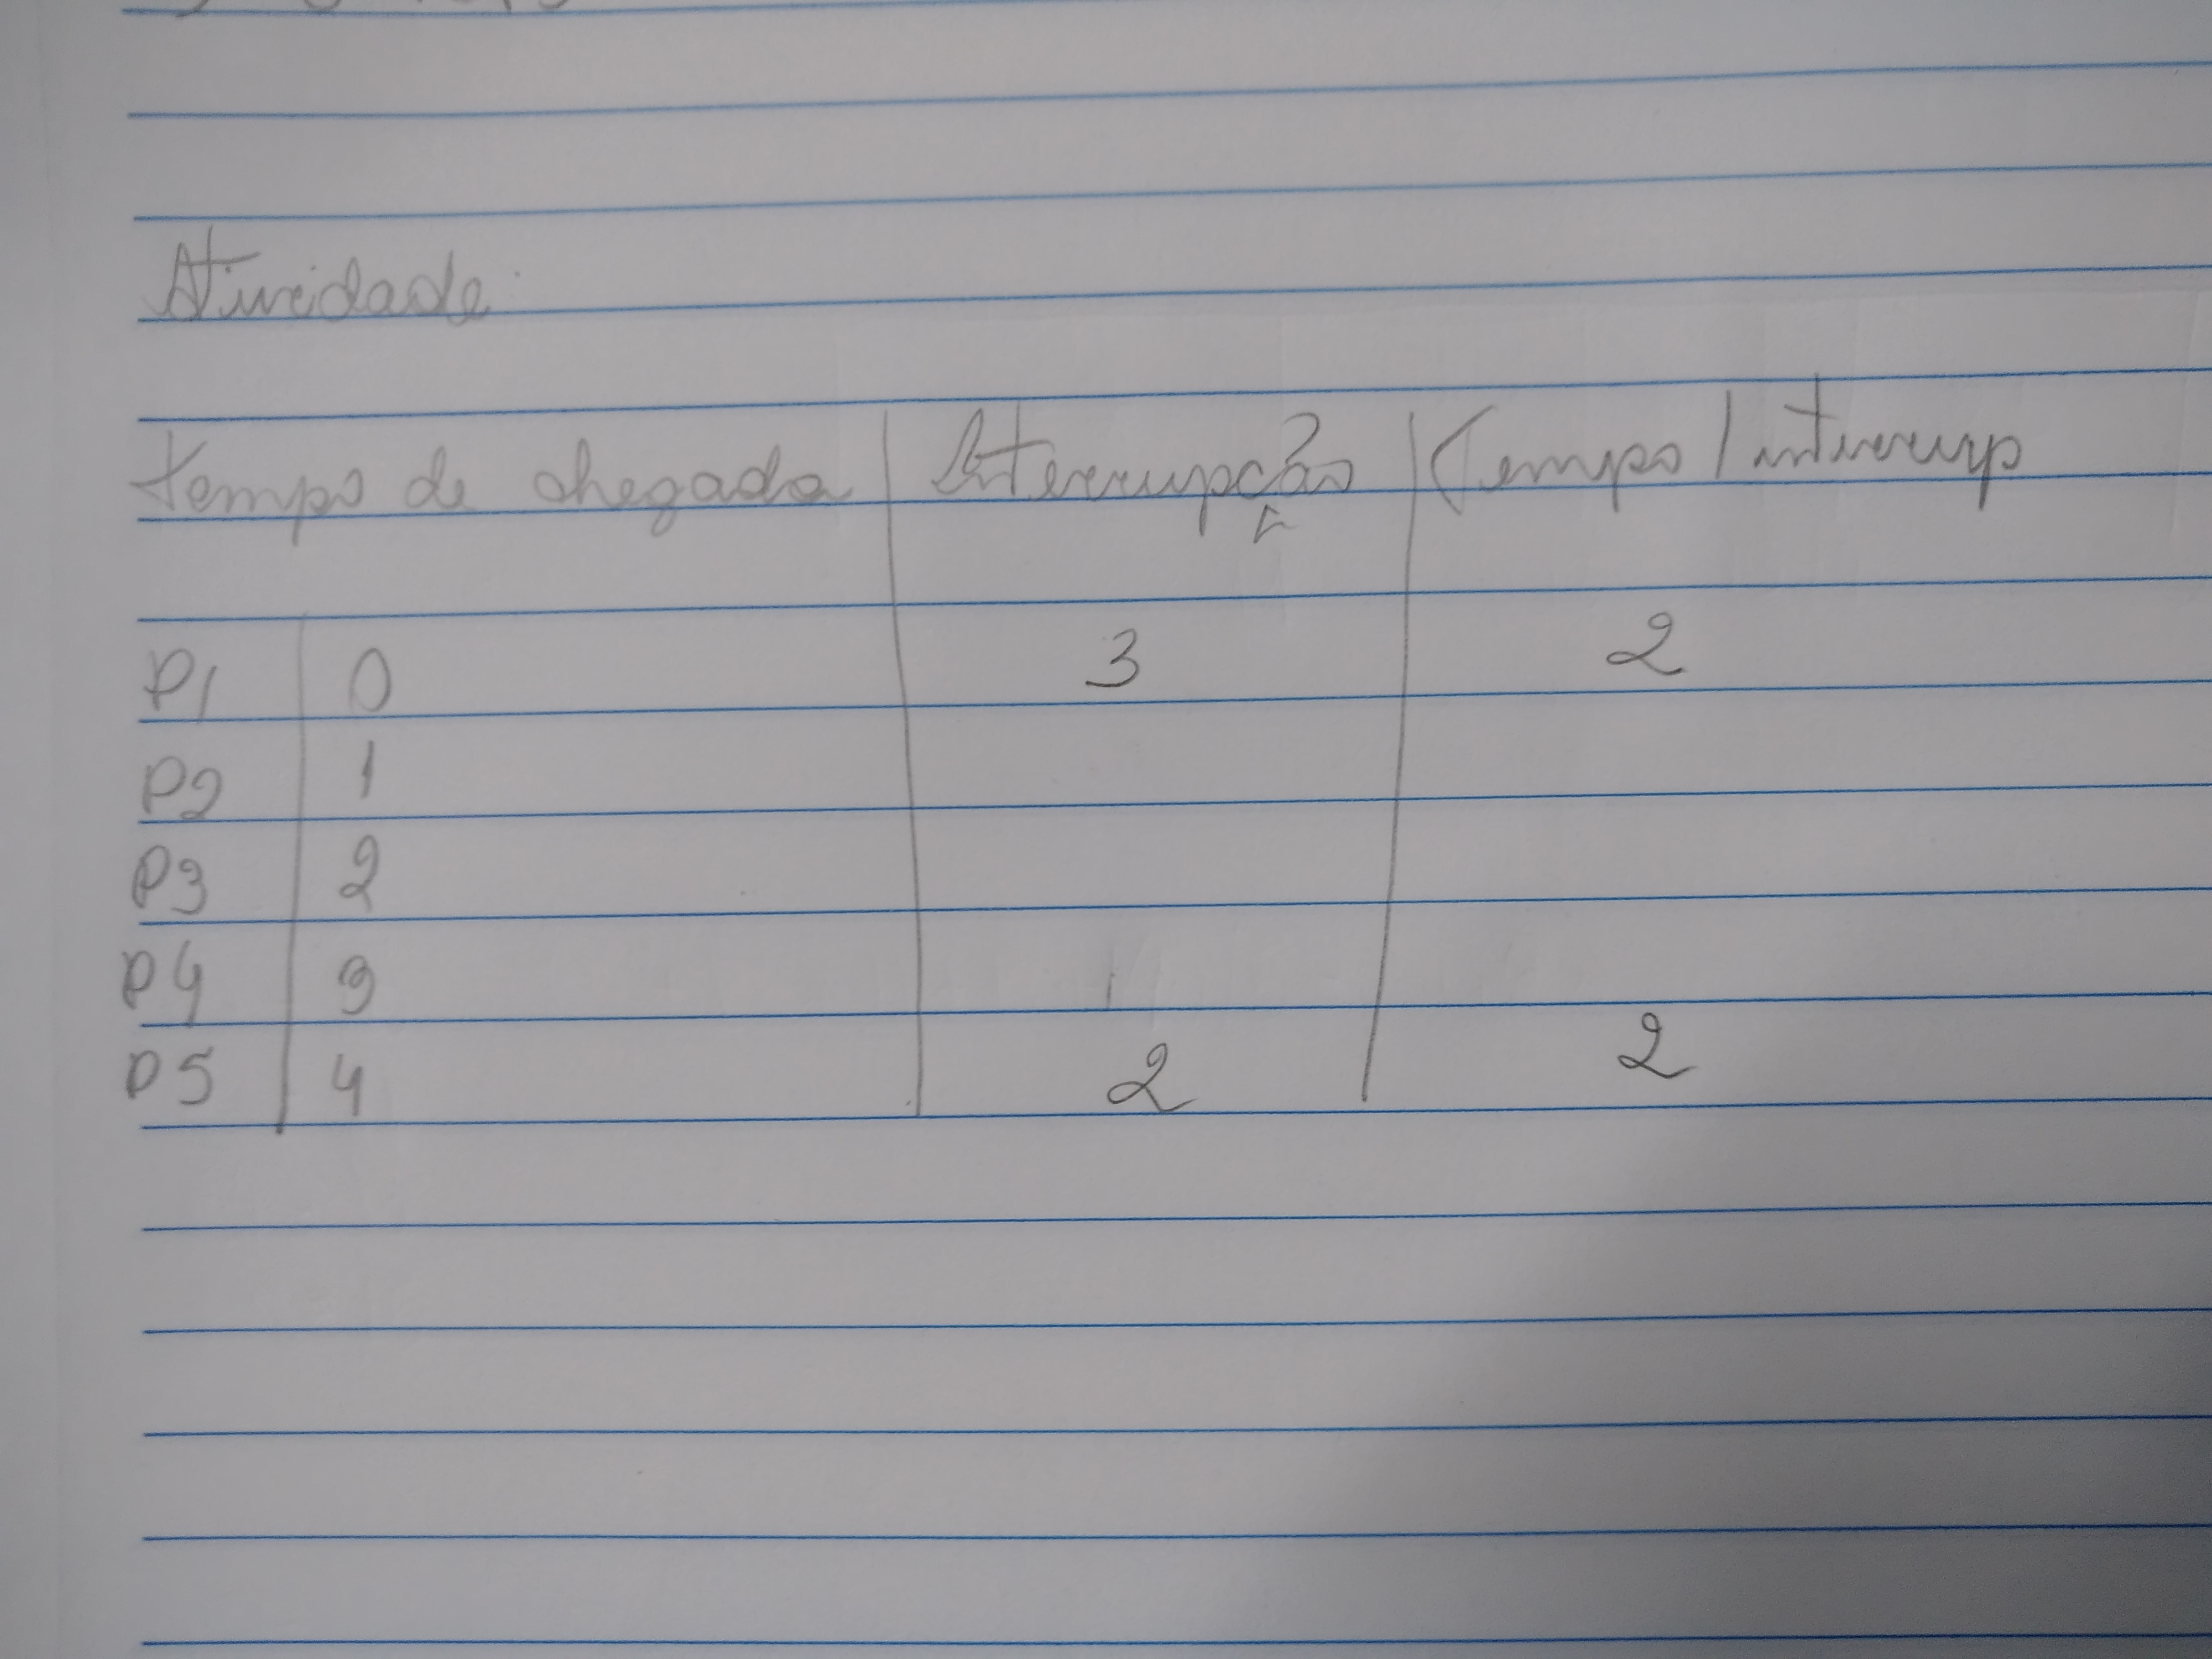 Atividade
tempo de chegada Interrupção Tempo / interrup
P1 0 3 2
P2 1
P3 2
P4 3
P5 4 2 2